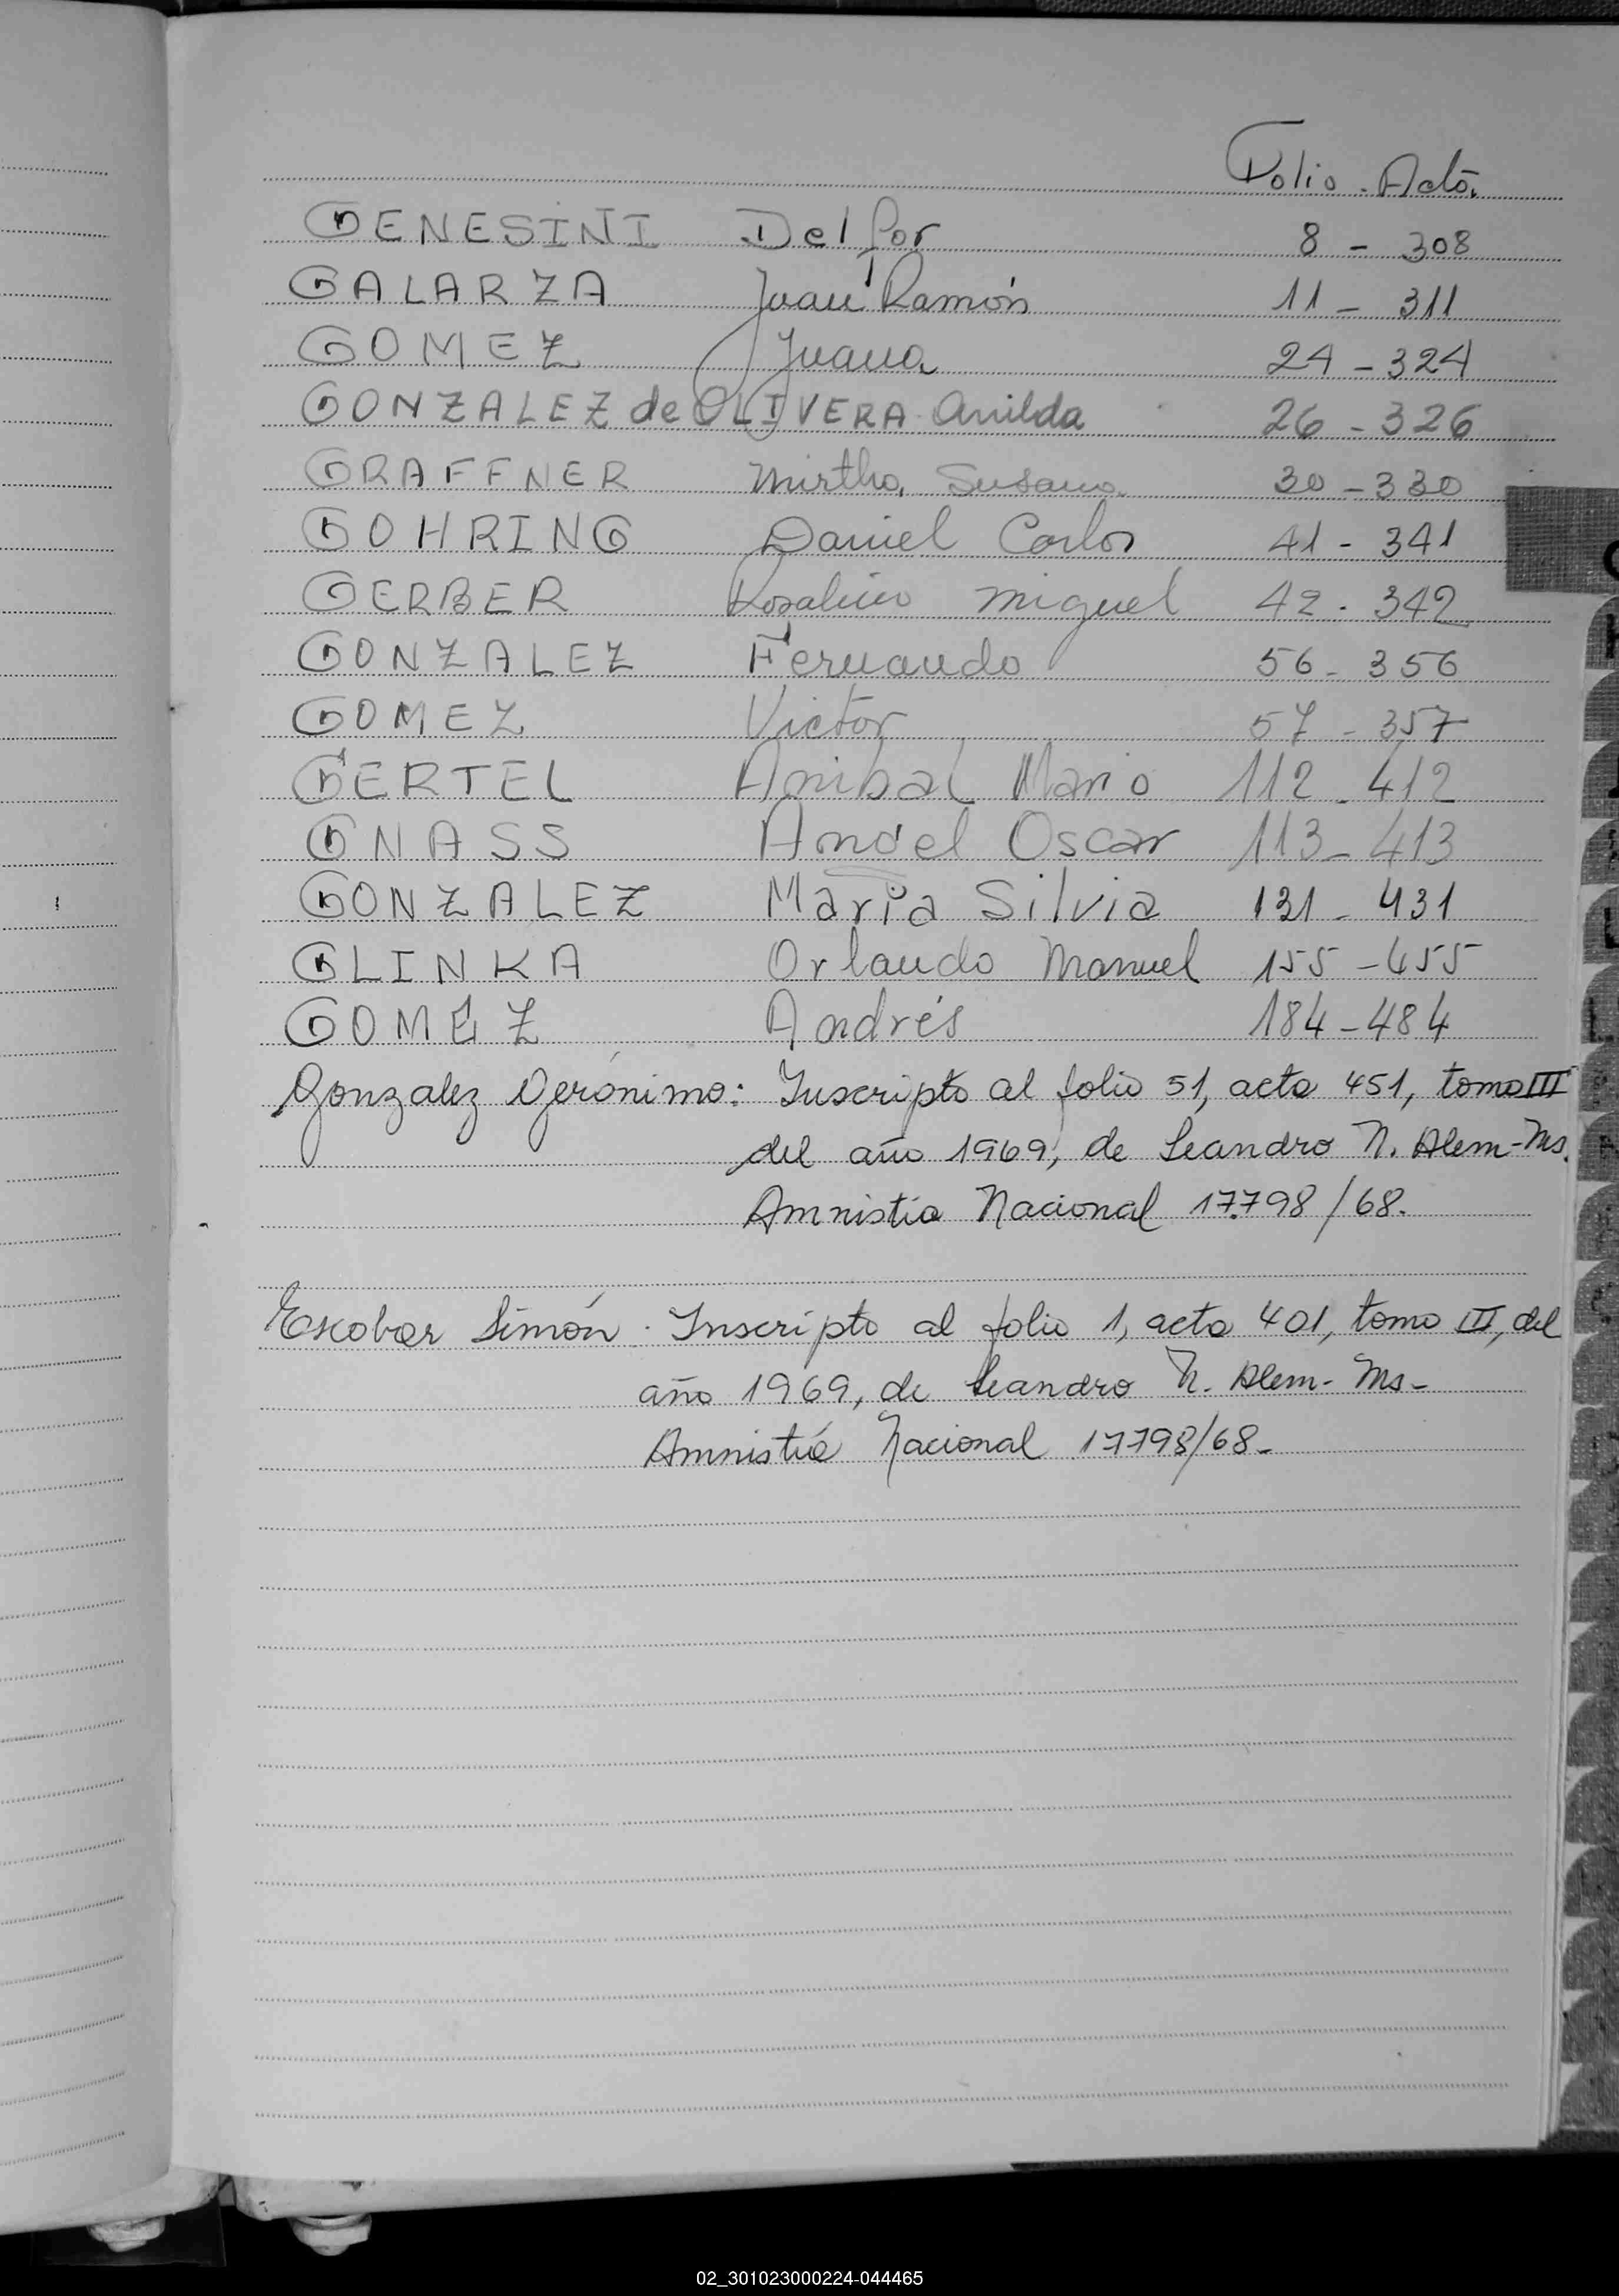 Folio - Acta
GENESINI Delfor 8 - 308
GALARZA Juan Ramón 11 - 311
GOMEZ Juana 24 - 324
GONZALEZ de OLIVERA Anilda 26 - 326
GRAFFNER Mirtha Susana 30 - 330
GOHRING Daniel Carlos 41 - 341
GERBER Rosalino Miguel 42 - 342
GONZALEZ Fernando 56 - 356
GOMEZ Victor 57 - 357
GERTEL Anibal Mario 112 - 412
GNASS Angel Oscar 113 - 413
GONZALEZ María Silvia 131 - 431
GLINKA Orlando Manuel 155 - 455
GOMEZ Andrés 184 - 484
Gonzalez Gerónimo: Inscripto al folio 51, acta 451, tomo III
del año 1969, de Leandro N. Alem-Ms.
Amnistia Nacional 17.798/68.
Escobar Simón. Inscripto al folio 1, acta 401, tomo III, del
año 1969, de Leandro N. Alem- Ms-
Amnistía Nacional 17798/68-
02_301023000224-044465